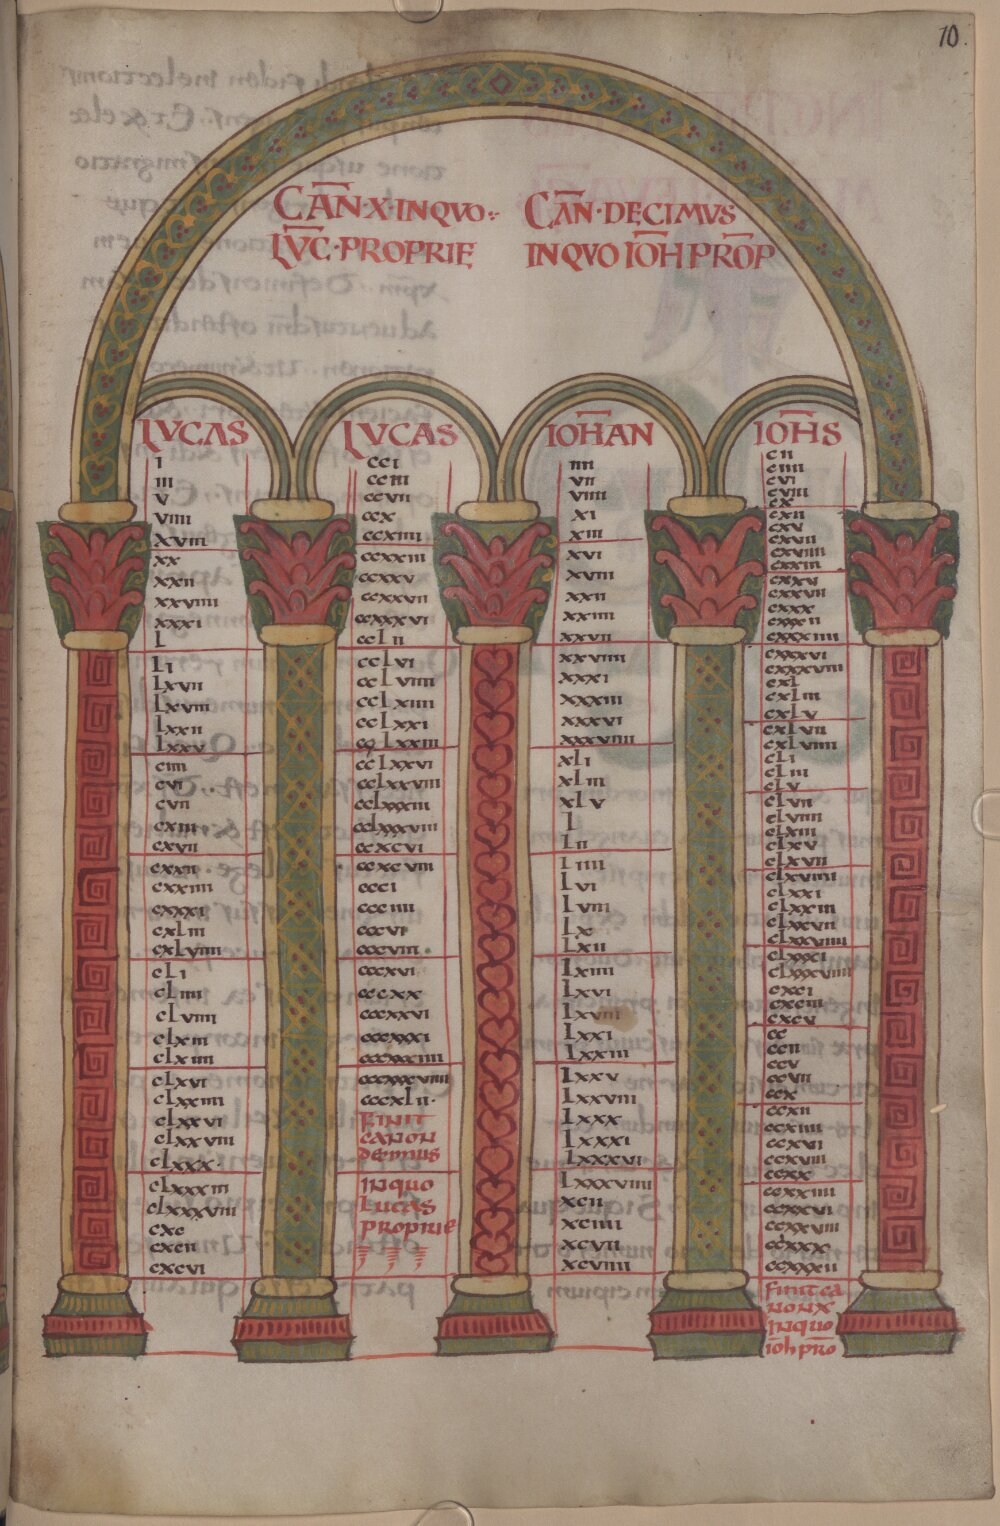 10.
CAN·X·INQVO·:·
LVC·PROPRIE
CAN·DECIMVS
INQVO IOH PROP
LVCAS
i
iii
v
viiii
xviii
xx
xxii
xxviiii
xxxi
l
li
lxvii
lxviii
lxxii
lxxv
ciiii
cvi
cvii
cxiii
cxvii
cxxii
cxxiiii
cxxxi
cxliii
cxlviiii
cli
cliiii
clviiii
clxiii
clxiiii
clxvi
clxxiiii
clxxvi
clxxviii
clxxx·
clxxxiii
clxxxviii
cxc
cxcii
cxcvi
LVCAS
cci
cciii
ccvii
ccx
ccxiiii
ccxxiii
ccxxv
ccxxvii
ccxxxvi
cclii
cclvi
cclviiii
cclxiiii
cclxxi
cclxxiii
cclxxvi
cclxxviii
cclxxxiii
cclxxxviii
ccxcvi
ccxcviii
ccci
ccciiii
cccvi
cccviii
cccxvi
cccxx
cccxxvi
cccxxxi
cccxxxiiii
cccxxxviiii
cccxlii·
finit
canon
decimus
inquo
lucas
proprie
IOHAN
iiii
vii
viiii
xi
xiii
xvi
xviii
xxii
xxiiii
xxvii
xxviiii
xxxi
xxxiii
xxxvi
xxxviiii
xli
xliii
xlv
l
lii
liiii
lvi
lviii
lx
lxii
lxiiii
lxvi
lxviii
lxxi
lxxiii
lxxv
lxxviii
lxxx
lxxxi
lxxxvi
lxxxviiii
xcii
xciiii
xcvii
xcviiii
IOHS
cii
ciiii
cvi
cviii
cx
cxii
cxv
cxvii
cxviiii
cxxiii
cxxv
cxxvii
cxxx
cxxxii
cxxxiiii
cxxxvi
cxxxviii
cxl
cxliii
cxlv
cxlvii
cxlviiii
cli
cliii
clv
clvii
clviiii
clxiii
clxv
clxvii
clxviiii
clxxi
clxxiii
clxxvii
clxxviiii
clxxxi
clxxxviiii
cxci
cxciii
cxcv
cc
ccii
ccv
ccvii
ccx
ccxii
ccxiiii
ccxvi
ccxviii
ccxx
ccxxiiii
ccxxvi
ccxxviii
ccxxx
ccxxxii
finit ca
non x
inquo
ioh pro